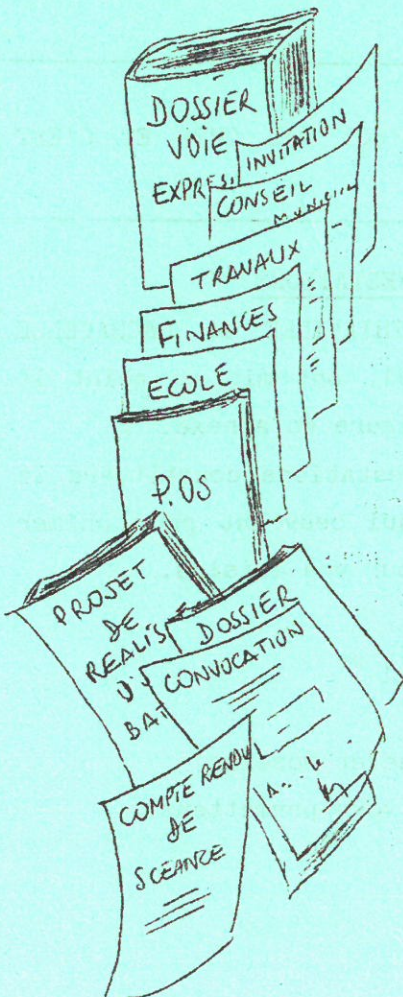 DOSSIER
VOIE
EXPRES
INVITATION
CONSEIL
TRAVAUX
FINANCES
ECOLE
P.OS
PROJET
DE
REALIS
D'
BAT
DOSSIER
CONVOCATION
COMPTE RENDU
DE
SCEANCE